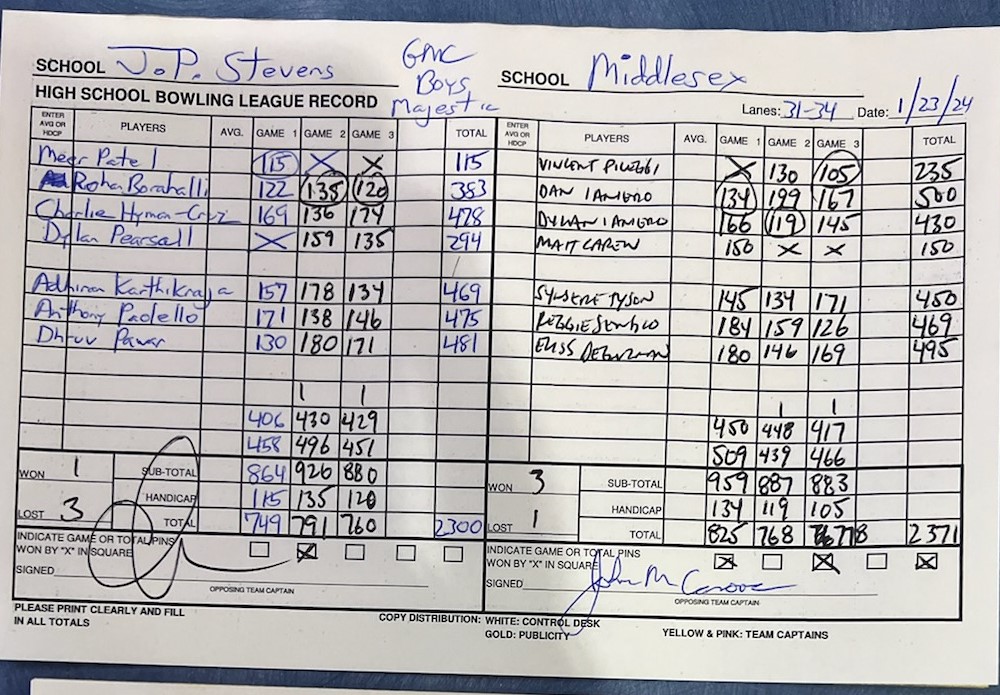 SCHOOL J.P. Stevens
GMC
Boys
Majestic
HIGH SCHOOL BOWLING LEAGUE RECORD
ENTER AVG OR HDCP PLAYERS AVG. GAME 1 GAME 2 GAME 3 TOTAL
Meer Patel 115 X X 115
Rohan 122 135 120 383
Charlie Hyman-Cruz 169 136 174 478
Dylan Pearsall X 159 135 294
Adhinan 157 178 134 469
Anthony Paolello 171 138 146 475
Dhruv Pawar 130 180 171 481
1 1
406 430 429
458 496 451
WON 1 SUB-TOTAL 864 926 880
HANDICAP 115 135 120
LOST 3 TOTAL 749 791 760 2300
INDICATE GAME OR TOTAL PINS
WON BY "X" IN SQUARE X
SIGNED
OPPOSING TEAM CAPTAIN
PLEASE PRINT CLEARLY AND FILL
IN ALL TOTALS
SCHOOL Middlesex
Lanes: 31-34 Date: 1/23/24
ENTER AVG OR HDCP PLAYERS AVG. GAME 1 GAME 2 GAME 3 TOTAL
VINCENT X 130 105 235
DAN IANIERO 134 199 167 500
DYLAN IANIERO 166 119 145 430
MATT CAREW 150 X X 150
TYSON 145 134 171 450
184 159 126 469
180 146 169 495
1 1
450 448 417
509 439 466
WON 3 SUB-TOTAL 959 887 883
HANDICAP 134 119 105
LOST 1 TOTAL 825 768 778 2371
INDICATE GAME OR TOTAL PINS
WON BY "X" IN SQUARE X X X
SIGNED
OPPOSING TEAM CAPTAIN
COPY DISTRIBUTION: WHITE: CONTROL DESK
GOLD: PUBLICITY YELLOW & PINK: TEAM CAPTAINS